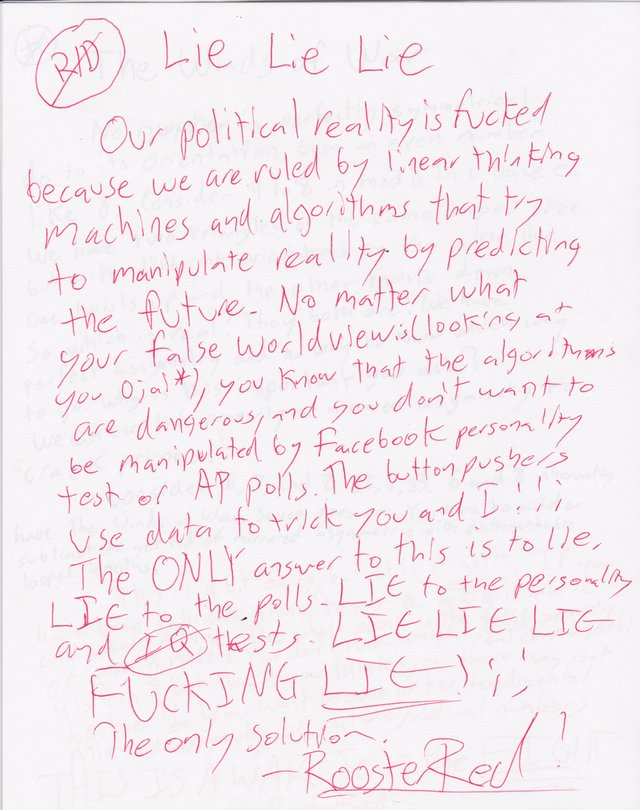 Lie Lie Lie
Our political reality is fucked
because we are ruled by linear thinking
machines and algorithms that try
to manipulate reality by predicting
the future. No matter what
your false worldview is (looking at
you Ojai*), you know that the algorithms
are dangerous, and you don't want to
be manipulated by Facebook personality
test or AP polls. The button pushers
use data to trick you and I.
The ONLY answer to this is to lie,
LIE to the polls. LIE to the personality
and IQ tests. LIE LIE LIE
FUCKING LIE
The only solution.
—RoosterRed!